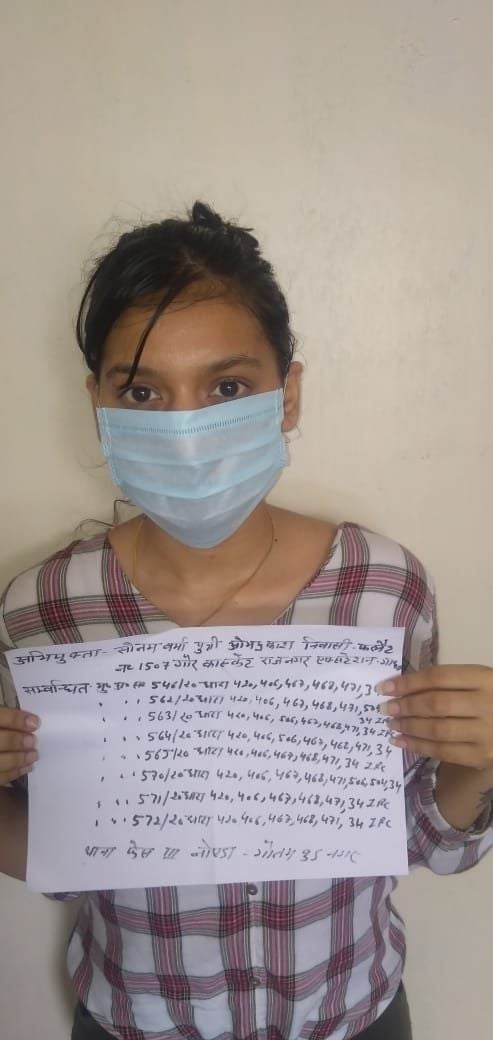 अभियुक्ता - सोनम वर्मा पुत्री ओमप्रकाश निवासी - फ्लैट
नं 1507 गौर कास्केट राजनगर एक्सटेंशन -
सम्बन्धित मु० अ० सं० 546/20 धारा 420, 406, 467, 468, 471, 34
" " " 562/20 धारा 420, 406, 467, 468, 471, 504
" " " 563/20 धारा 420, 406, 506, 467, 468, 471, 34 IPC
" " " 564/20 धारा 420, 406, 506, 467, 468, 471, 34 IPC
" " " 565/20 धारा 420, 406, 467, 468, 471, 34 IPC
" " " 570/20 धारा 420, 406, 467, 468, 471, 506, 504, 34
" " " 571/20 धारा 420, 406, 467, 468, 471, 34 IPC
" " " 572/20 धारा 420, 406, 467, 468, 471, 34 IPC
थाना फेस III नोएडा - गौतम बुद्ध नगर